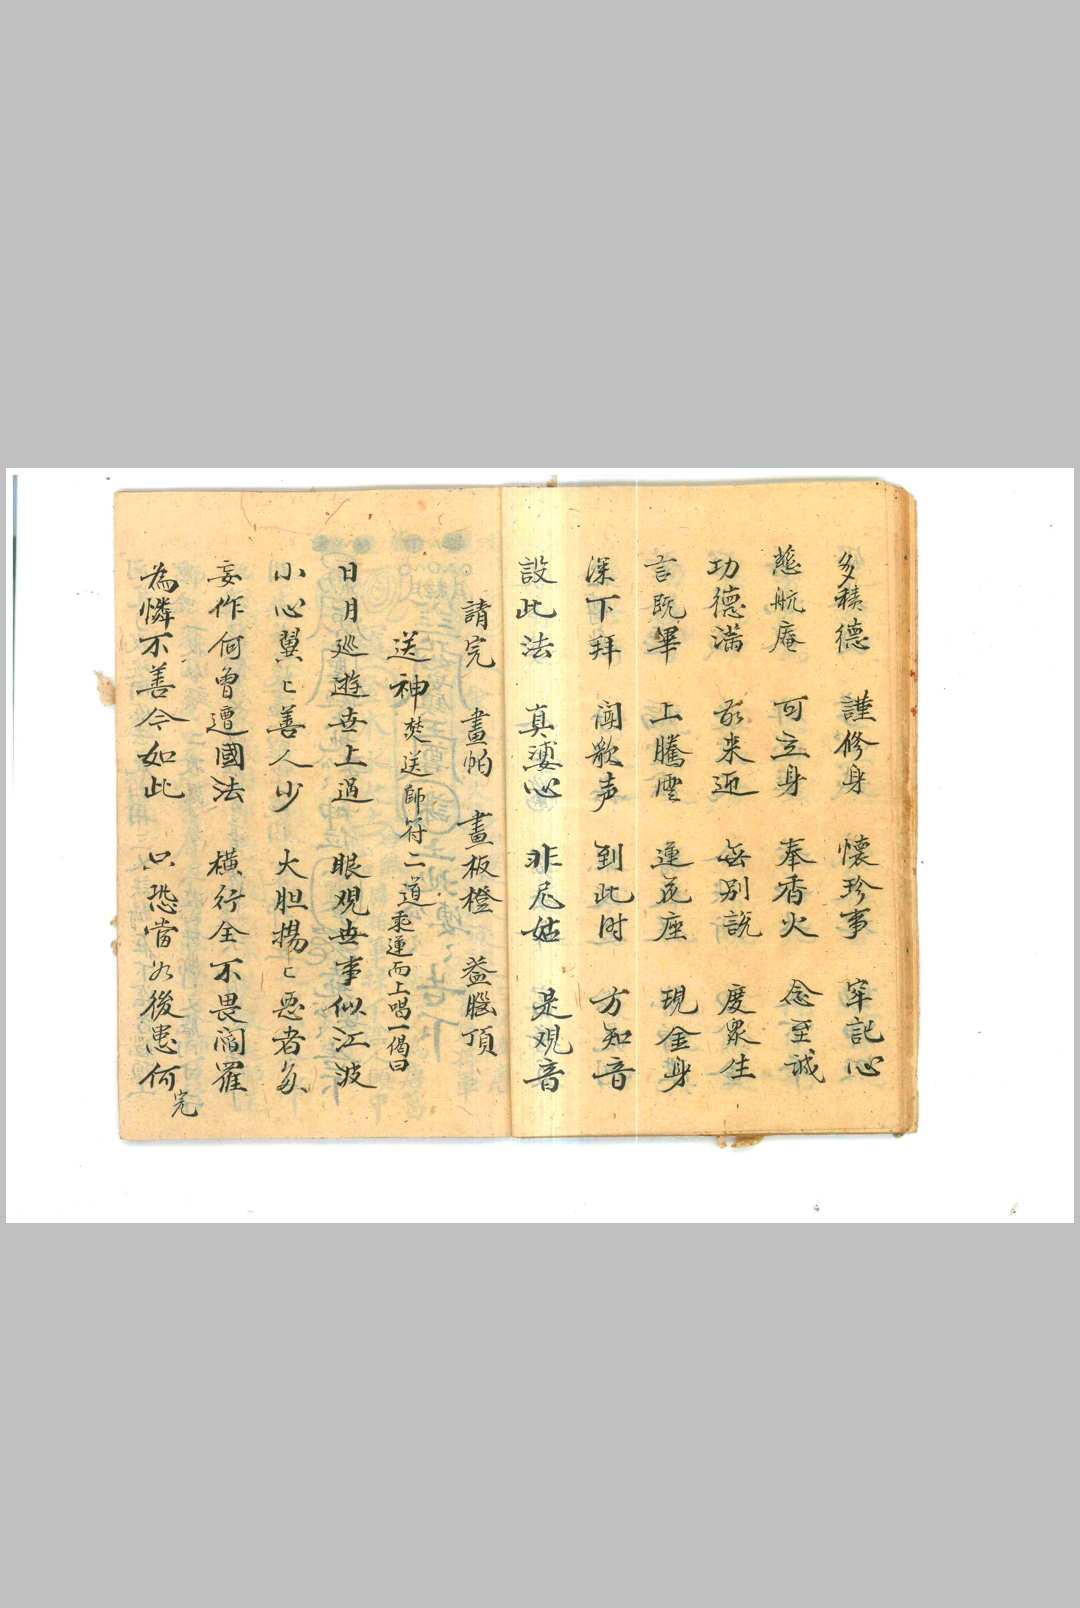 多積德 謹修身 懷珍事 牢記心
慈航庵 可立身 奉香火 念至誠
功德滿 我来迎 無别説 度衆生
言既畢 上騰雲 蓮花座 現金身
深下拜 闻歌声 到此时 方知音
設此法 真婆心 非尼姑 是观音
請完 畫帕 畫板橙 益腦頂
送神 焚送師符二道 乘運而上唱一偈曰
日月巡遊世上過 眼观世事似江波
小心翼〻善人少 大胆揚〻恶者多
妄作何曾遭國法 橫行全不畏閻羅
為憐不善今如此 只恐當以後患何 完